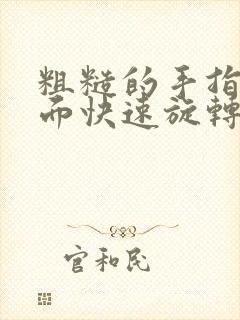 粗糙的手指
而快速旋轉
官和民